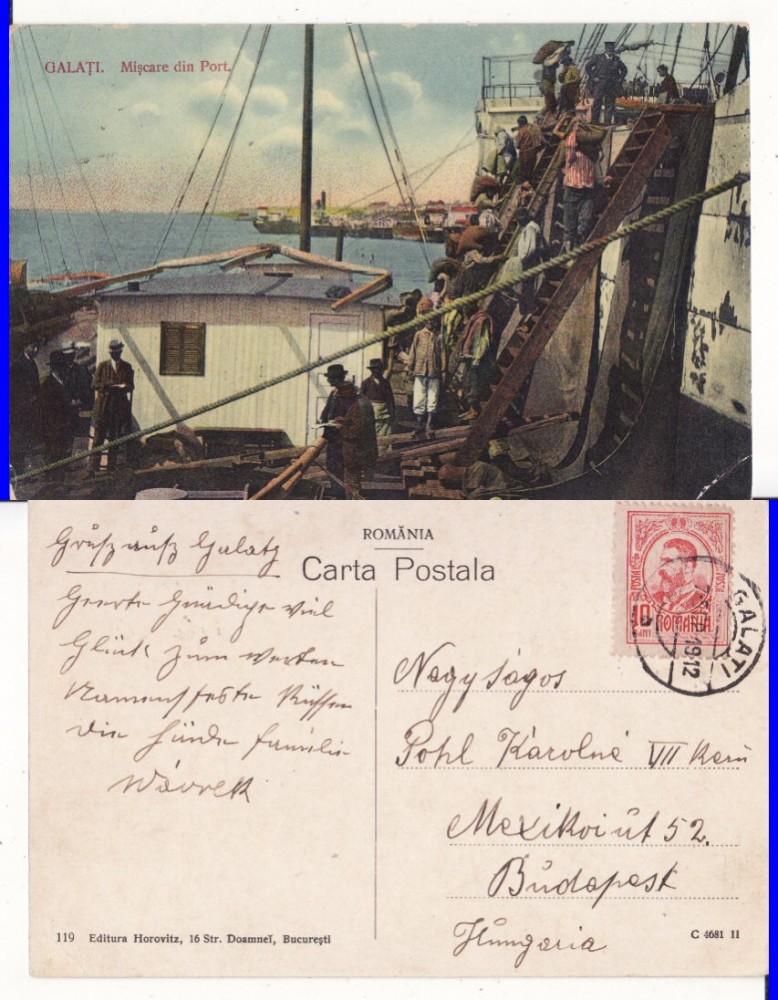 GALAȚI. Mișcare din Port.
Gruß aus Galatz
Geerte Gnädige viel
Glück zum werten
Namensfeste Küssen
die Hände Familie
ROMÂNIA
Carta Postala
10
BANI
ROMANIA
GALATI
1912
Nagyságos
Pohl Károlné VII ker
Mexikoi út 52.
Budapest
Hungaria
119 Editura Horovitz, 16 Str. Doamneĭ, Bucureștĭ
C 4681 11